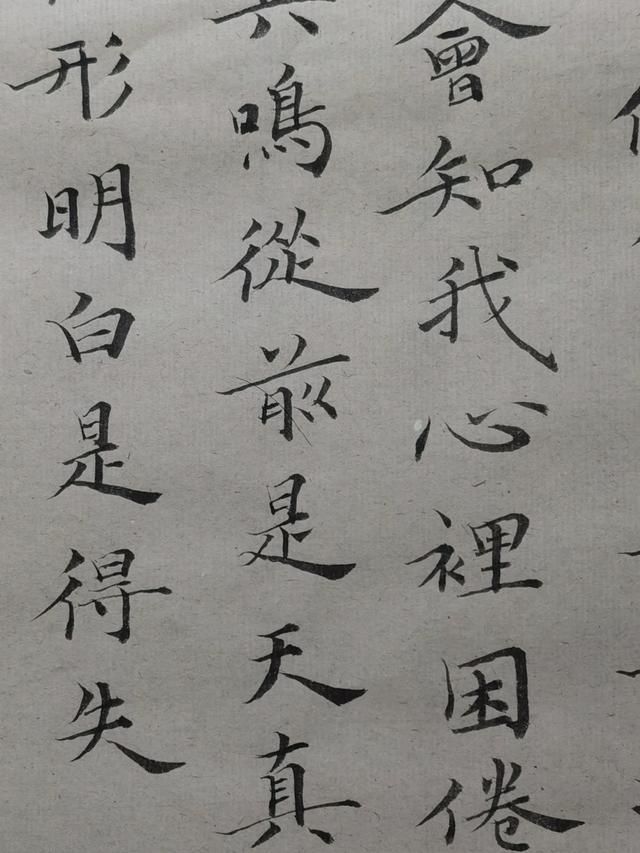 會知我心裡困倦
鳴從前是天真
形明白是得失